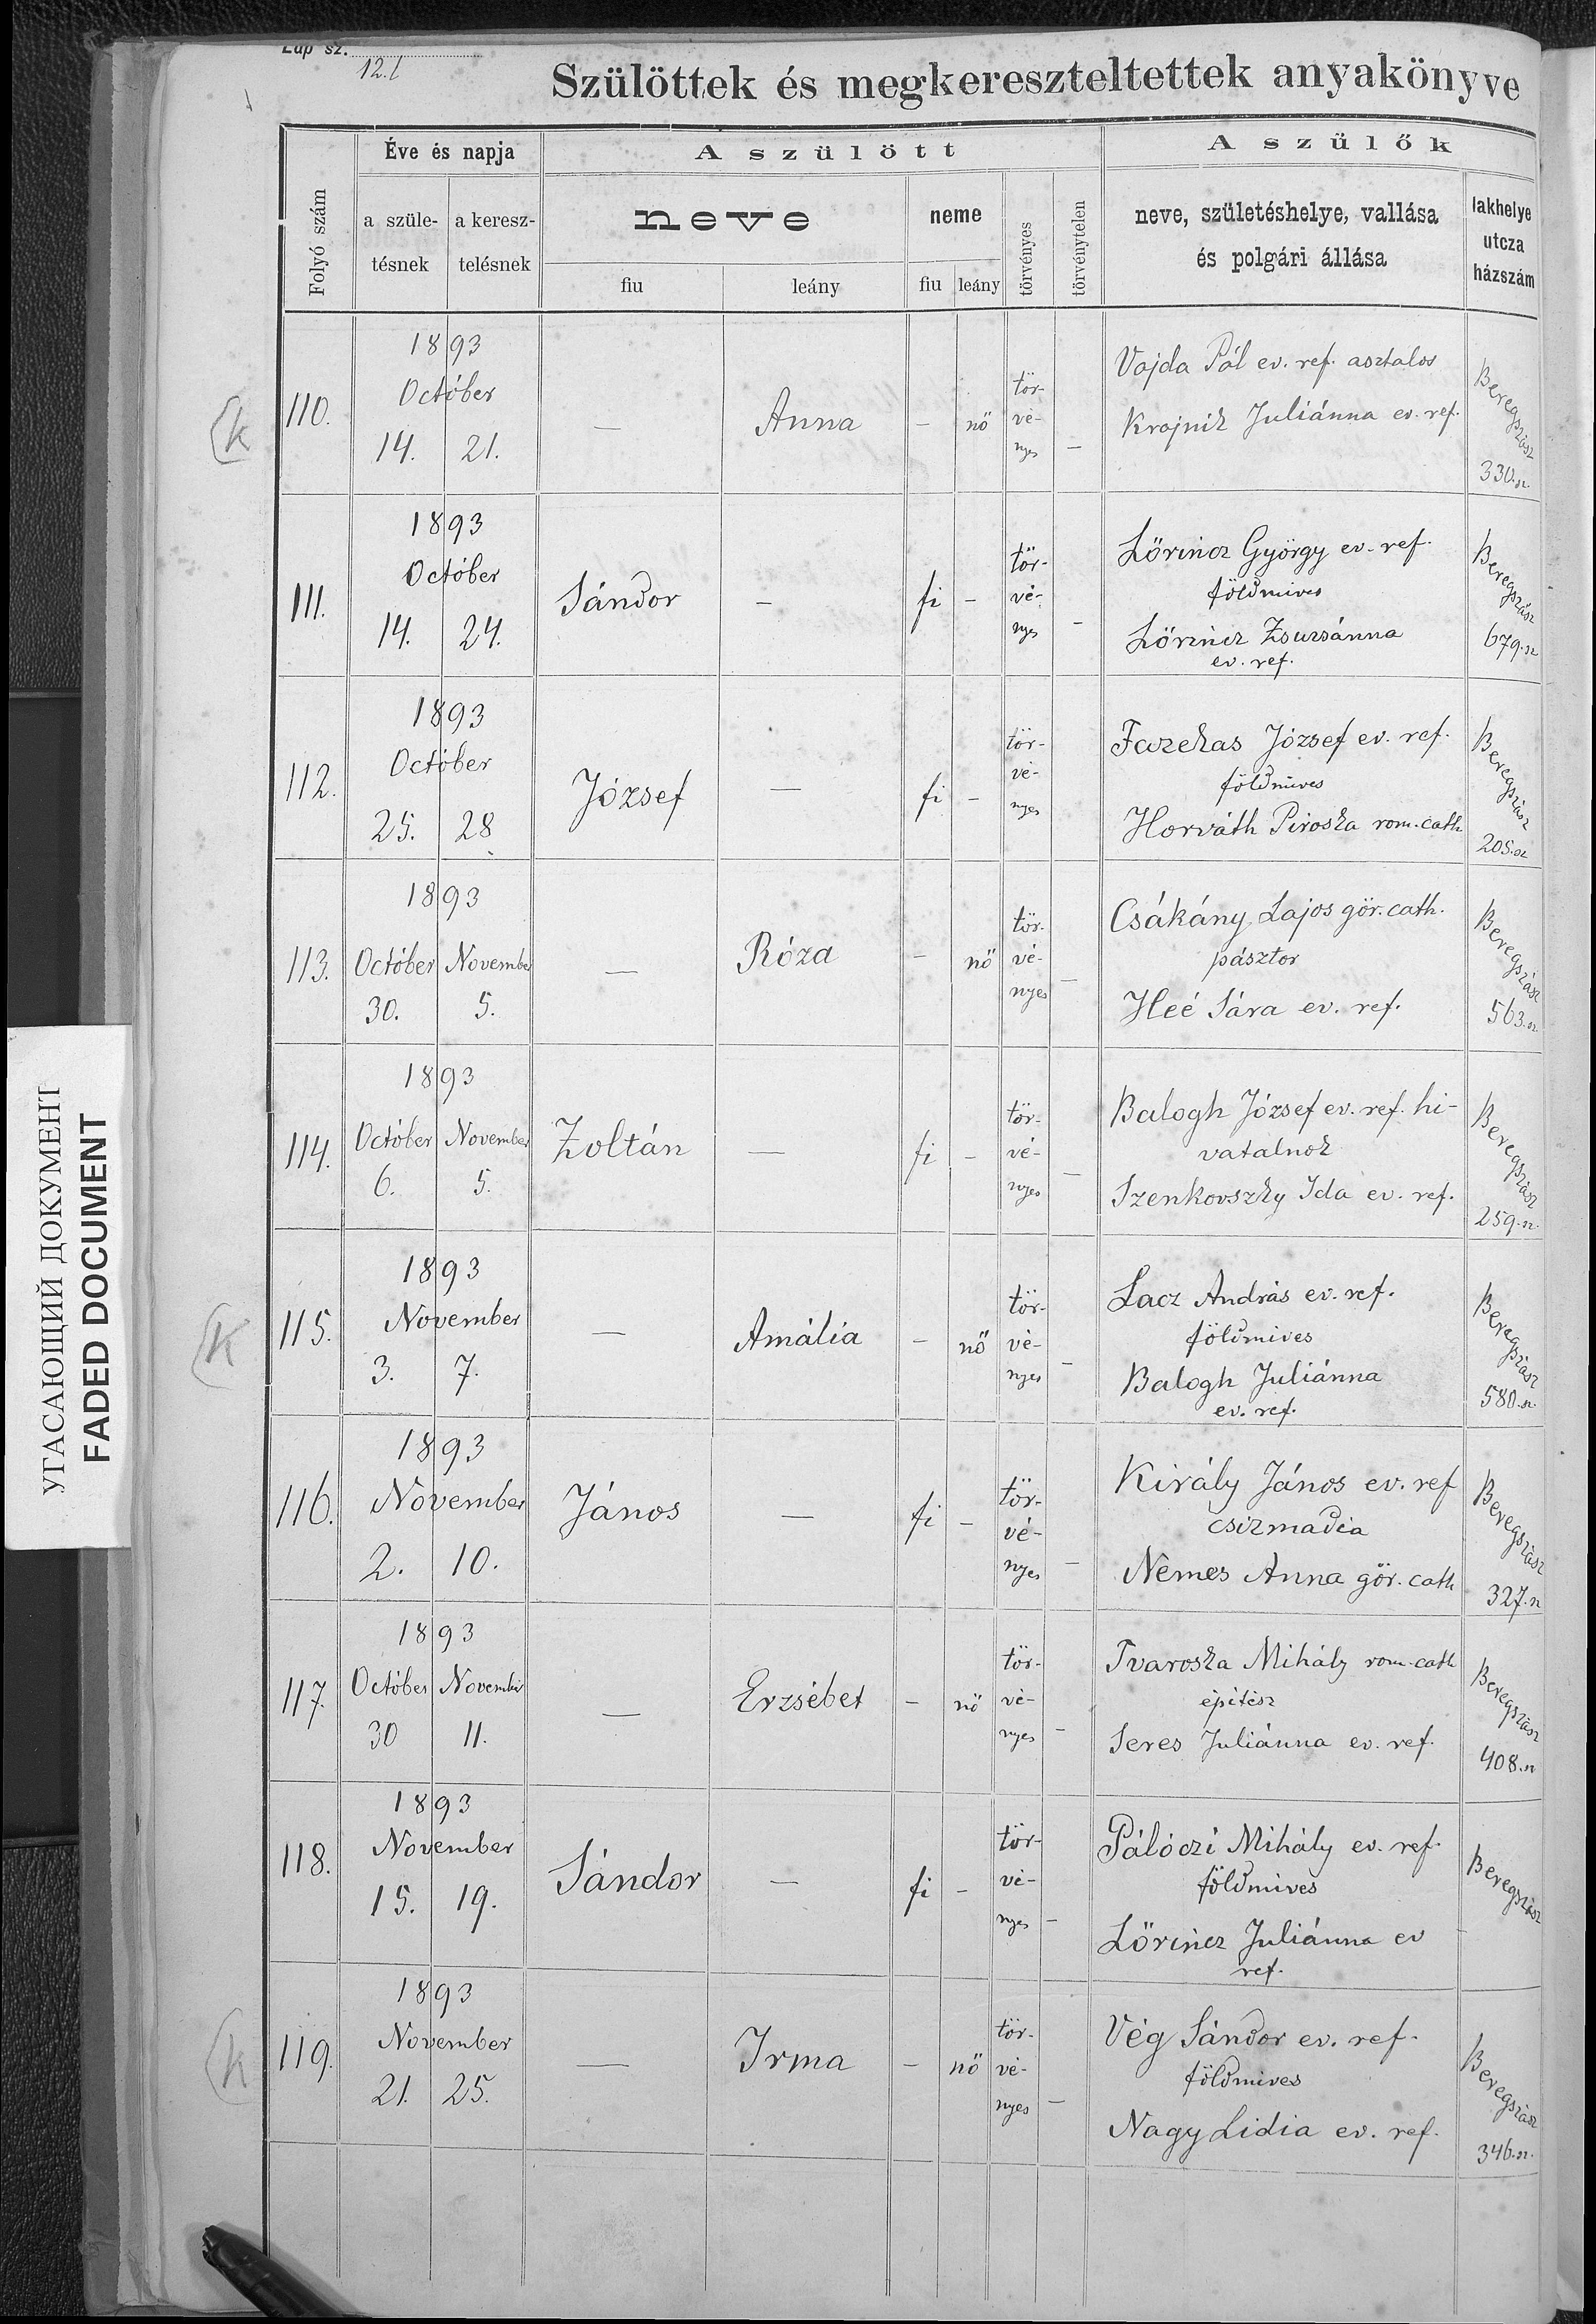 Lap sz.
12.
Szülöttek és megkereszteltettek anyakönyve
Folyó szám
Éve és napja
a szüle-
tésnek
a keresz-
telésnek
A szülött
neve
fiu
leány
neme
fiu
leány
törvényes
törvénytelen
A szülők
neve, születéshelye, vallása
és polgári állása
lakhelye
utcza
házszám
K
110.
1893
Octóber
14. 21.
—
Anna
- nő
tör-
vé-
nyes
—
Vajda Pál ev. ref. asztalos
Krajnik Juliánna ev. ref.
Beregszász
330. sz.
111.
1893
Octóber
14. 24.
Sándor
—
fi -
tör-
vé-
nyes
—
Lőrincz György ev. ref.
földmives
Lőrincz Zsuzsánna
ev. ref.
Beregszász
679. sz
112.
1893
Octóber
25. 28
József
—
fi -
tör-
vé-
nyes
Fazekas József ev. ref.
földmives
Horváth Piroska rom. cath
Beregszász
205. sz
113.
1893
Octóber November
30. 5.
—
Róza
- nő
tör-
vé-
nyes
—
Csákány Lajos gör. cath.
pásztor
Heé Sára ev. ref.
Beregszász
563. sz.
114.
1893
Octóber November
6. 5.
Zoltán
—
fi -
tör-
vé-
nyes
—
Balogh József ev. ref. hi-
vatalnok
Szenkovszky Ida ev. ref.
Beregszász
259. sz.
K
115.
1893
November
3. 7.
—
Amália
- nő
tör-
vé-
nyes
—
Lacz András ev. ref.
földmives
Balogh Juliánna
ev. ref.
Beregszász
580. sz.
116.
1893
November
2. 10.
János
—
fi -
tör-
vé-
nyes
—
Király János ev. ref
csizmadia
Nemes Anna gör. cath
Beregszász
327. sz
117.
1893
Octóber November
30 11.
—
Erzsébet
- nő
tör-
vé-
nyes
—
Tvaroska Mihály rom. cath
épitész
Seres Juliánna ev. ref.
Beregszász
408. sz
118.
1893
November
15. 19.
Sándor
—
fi -
tör-
vé-
nyes
—
Pálóczi Mihály ev. ref.
földmives
Lőrincz Juliánna ev
ref.
Beregszász
—
K
119.
1893
November
21. 25.
—
Irma
- nő
tör-
vé-
nyes
—
Vég Sándor ev. ref.
földmives
Nagy Lidia ev. ref.
Beregszász
346. sz.
УГАСАЮЩИЙ ДОКУМЕНТ
FADED DOCUMENT